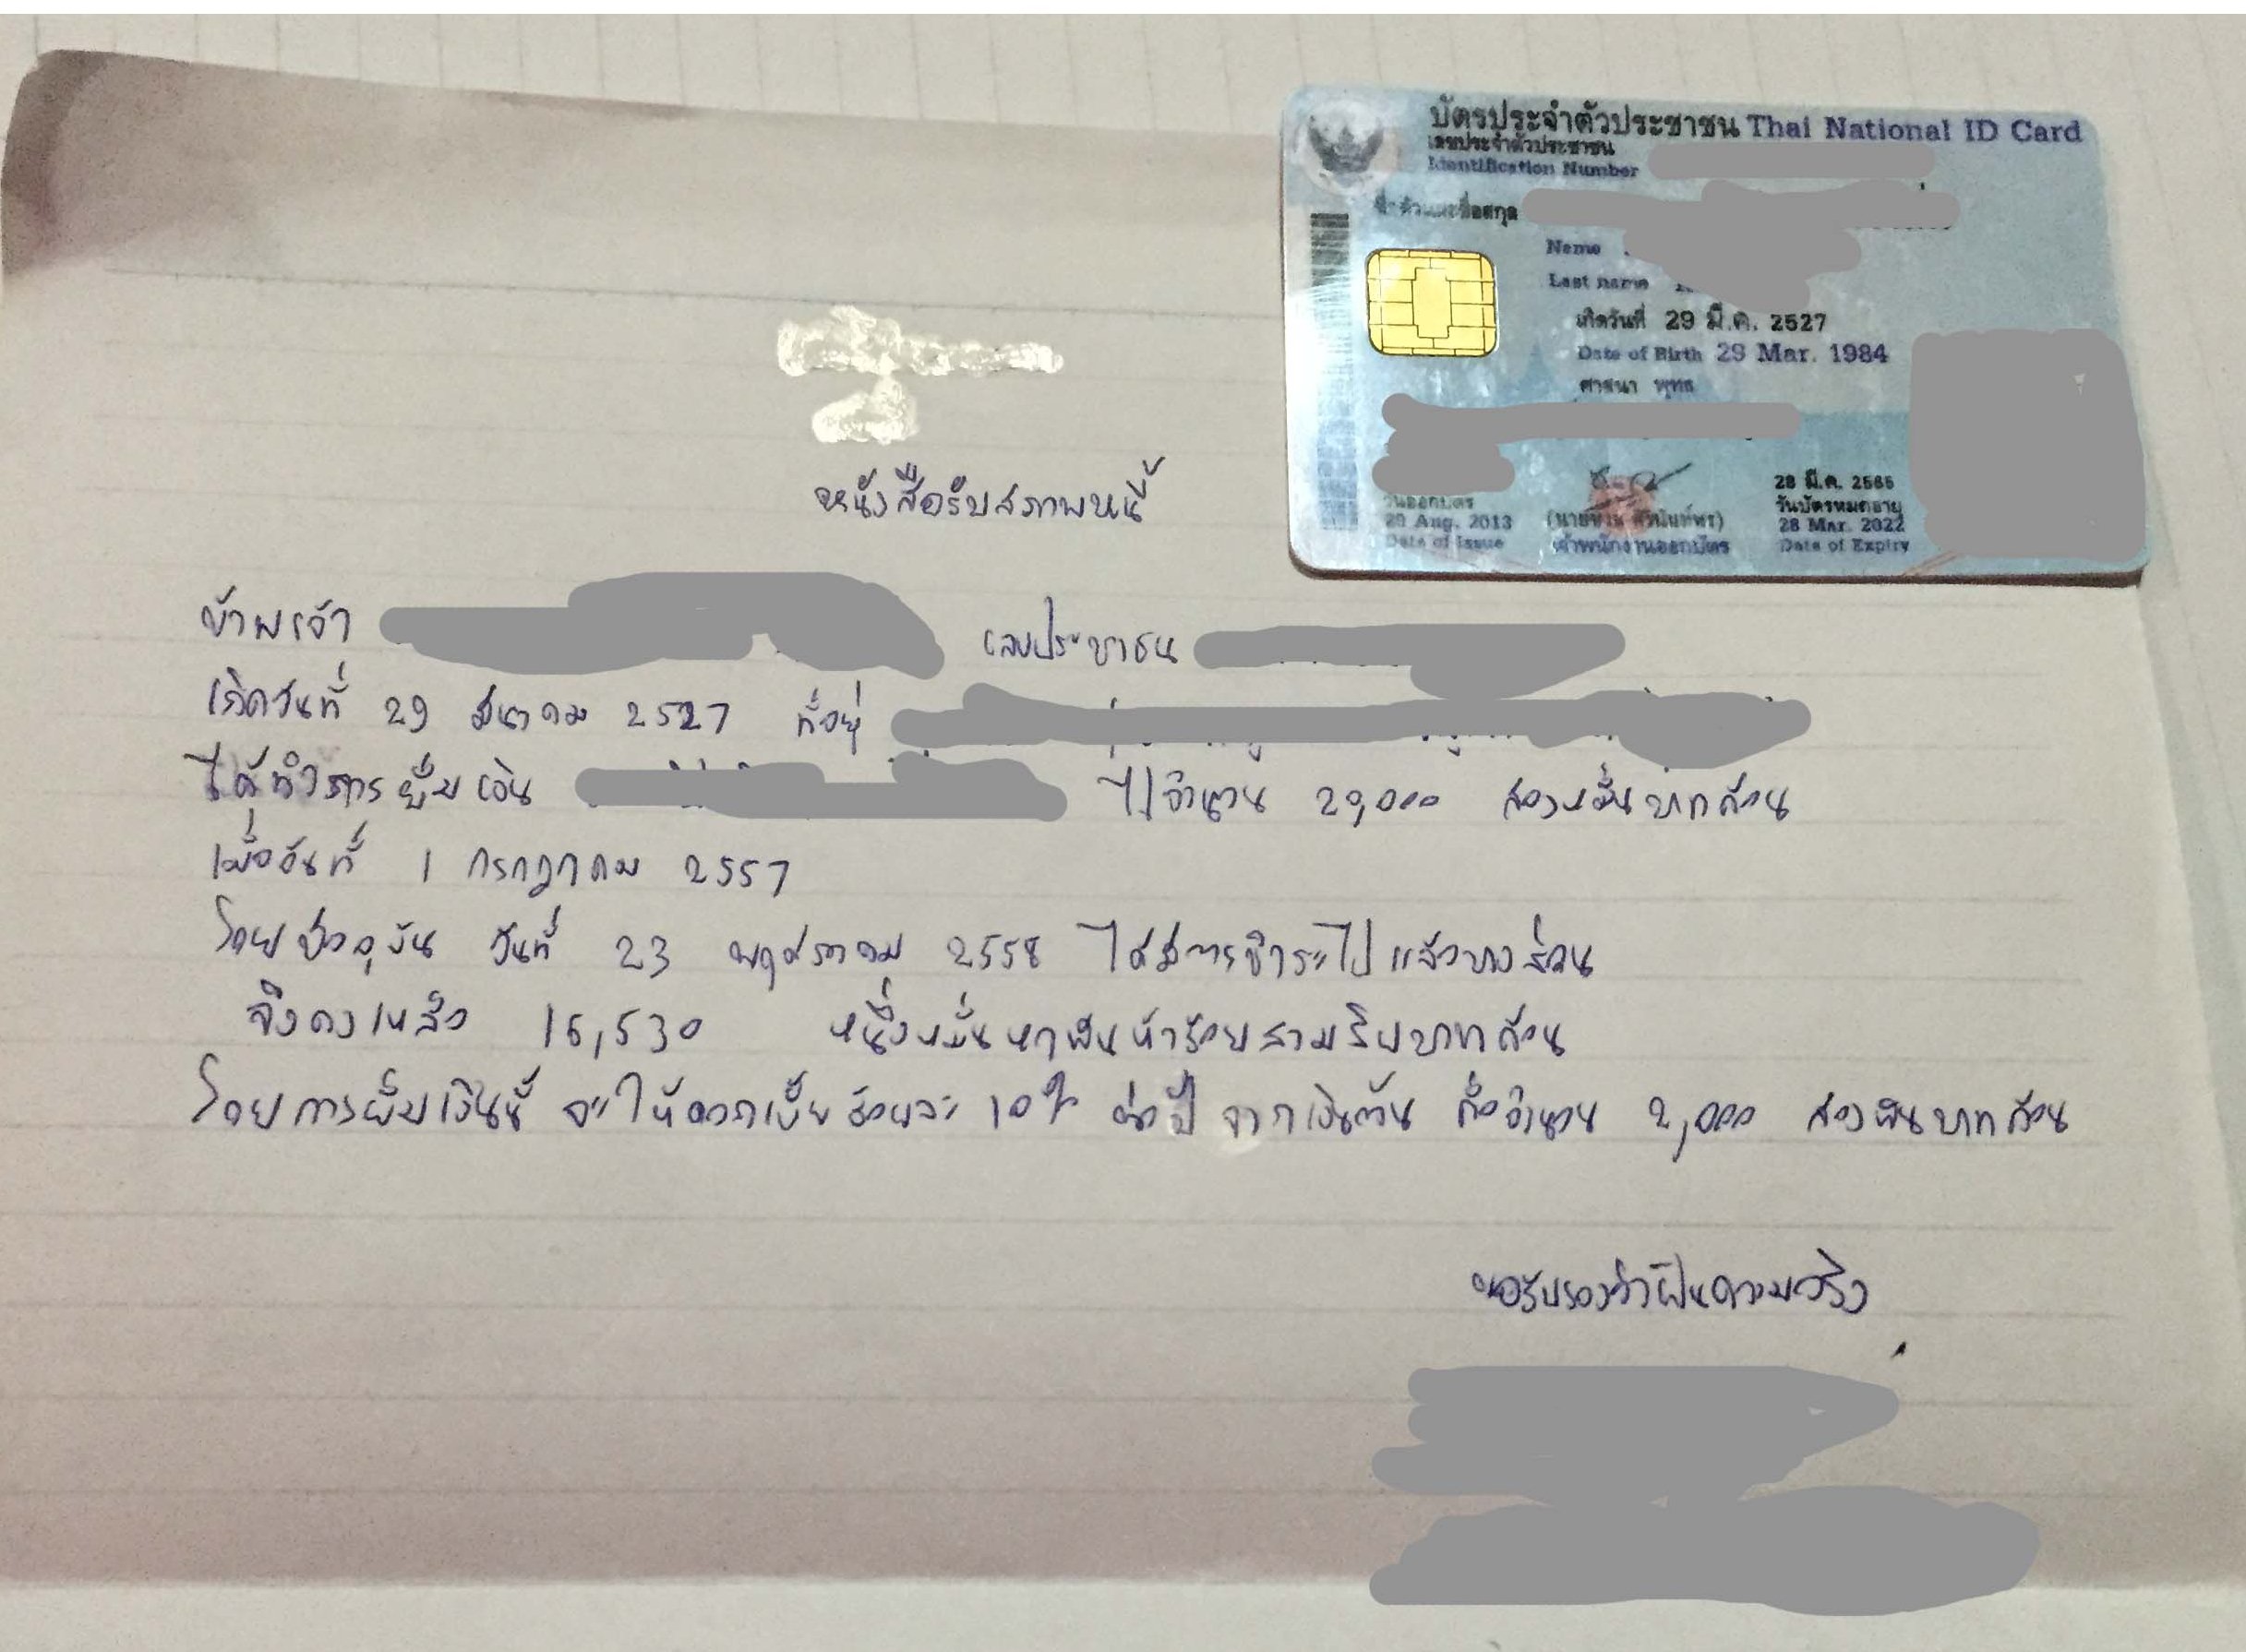 บัตรประจำตัวประชาชน Thai National ID Card
เลขประจำตัวประชาชน
Identification Number
ชื่อตัวและชื่อสกุล
Name
Last name
เกิดวันที่ 29 มี.ค. 2527
Date of Birth 29 Mar. 1984
ศาสนา พุทธ
วันออกบัตร
20 Aug. 2013
Date of Issue
เจ้าพนักงานออกบัตร
28 มี.ค. 2565
วันบัตรหมดอายุ
28 Mar. 2022
Date of Expiry
หนังสือรับสภาพหนี้
ข้าพเจ้า เลขประชาชน
เกิดวันที่ 29 มีนาคม 2527 ที่อยู่
ได้ทำการยืมเงิน ไปจำนวน 20,000 สองหมื่นบาทถ้วน
เมื่อวันที่ 1 กรกฎาคม 2557
โดยปัจจุบัน วันที่ 23 พฤษภาคม 2558 ได้มีการชำระไปแล้วบางส่วน
จึงคงเหลือ 16,530 หนึ่งหมื่นหกพันห้าร้อยสามสิบบาทถ้วน
โดยการยืมเงินนี้ จะให้ดอกเบี้ย ร้อยละ 10% ต่อปี จากเงินต้น คือจำนวน 2,000 สองพันบาทถ้วน
ขอรับรองว่าเป็นความจริง